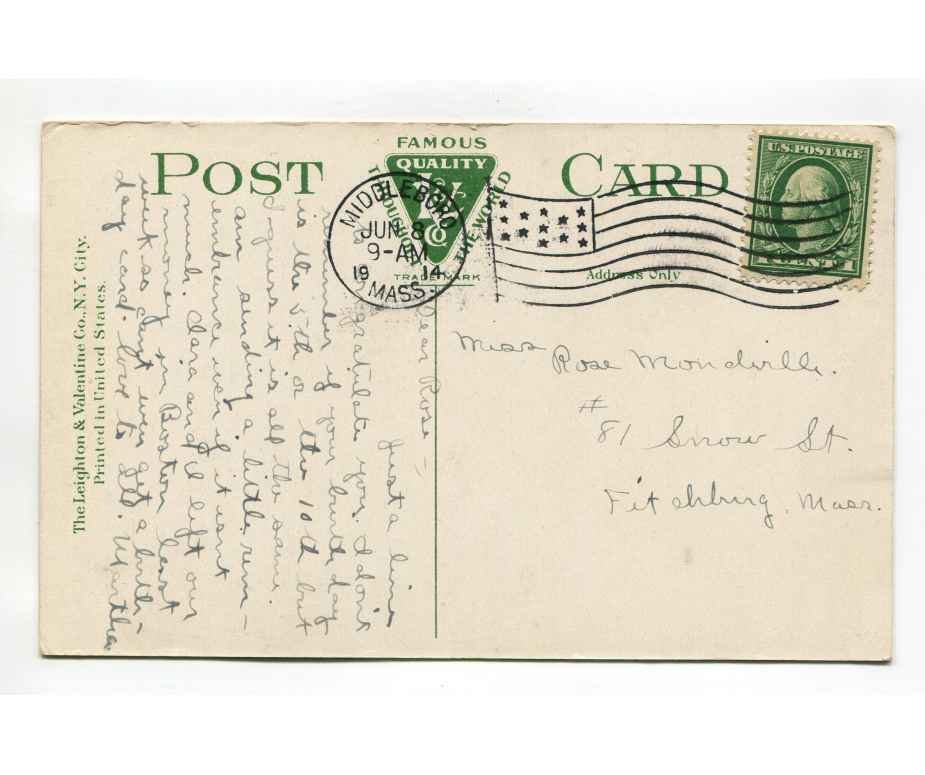 POST CARD
FAMOUS
QUALITY
THROUGHOUT THE WORLD
L & V Co
TRADE MARK
MIDDLEBORO
JUN 8
9-AM
1914
MASS.
U.S. POSTAGE
1 CENT 1
Address Only
Miss Rose Mondville.
# 81 Snow St.
Fitchburg, Mass.
Dear Rose =
Just a line
gratulate you. I don't
if your birthday
is the 5th or the 10th but
I guess it is all the same.
am sending a little rem-
embrance even if it isnt
much. Clara and I left our
money in Boston last
week so cant even get a birth-
day card. Love to all. Martha
The Leighton & Valentine Co., N.Y. City.
Printed in United States.